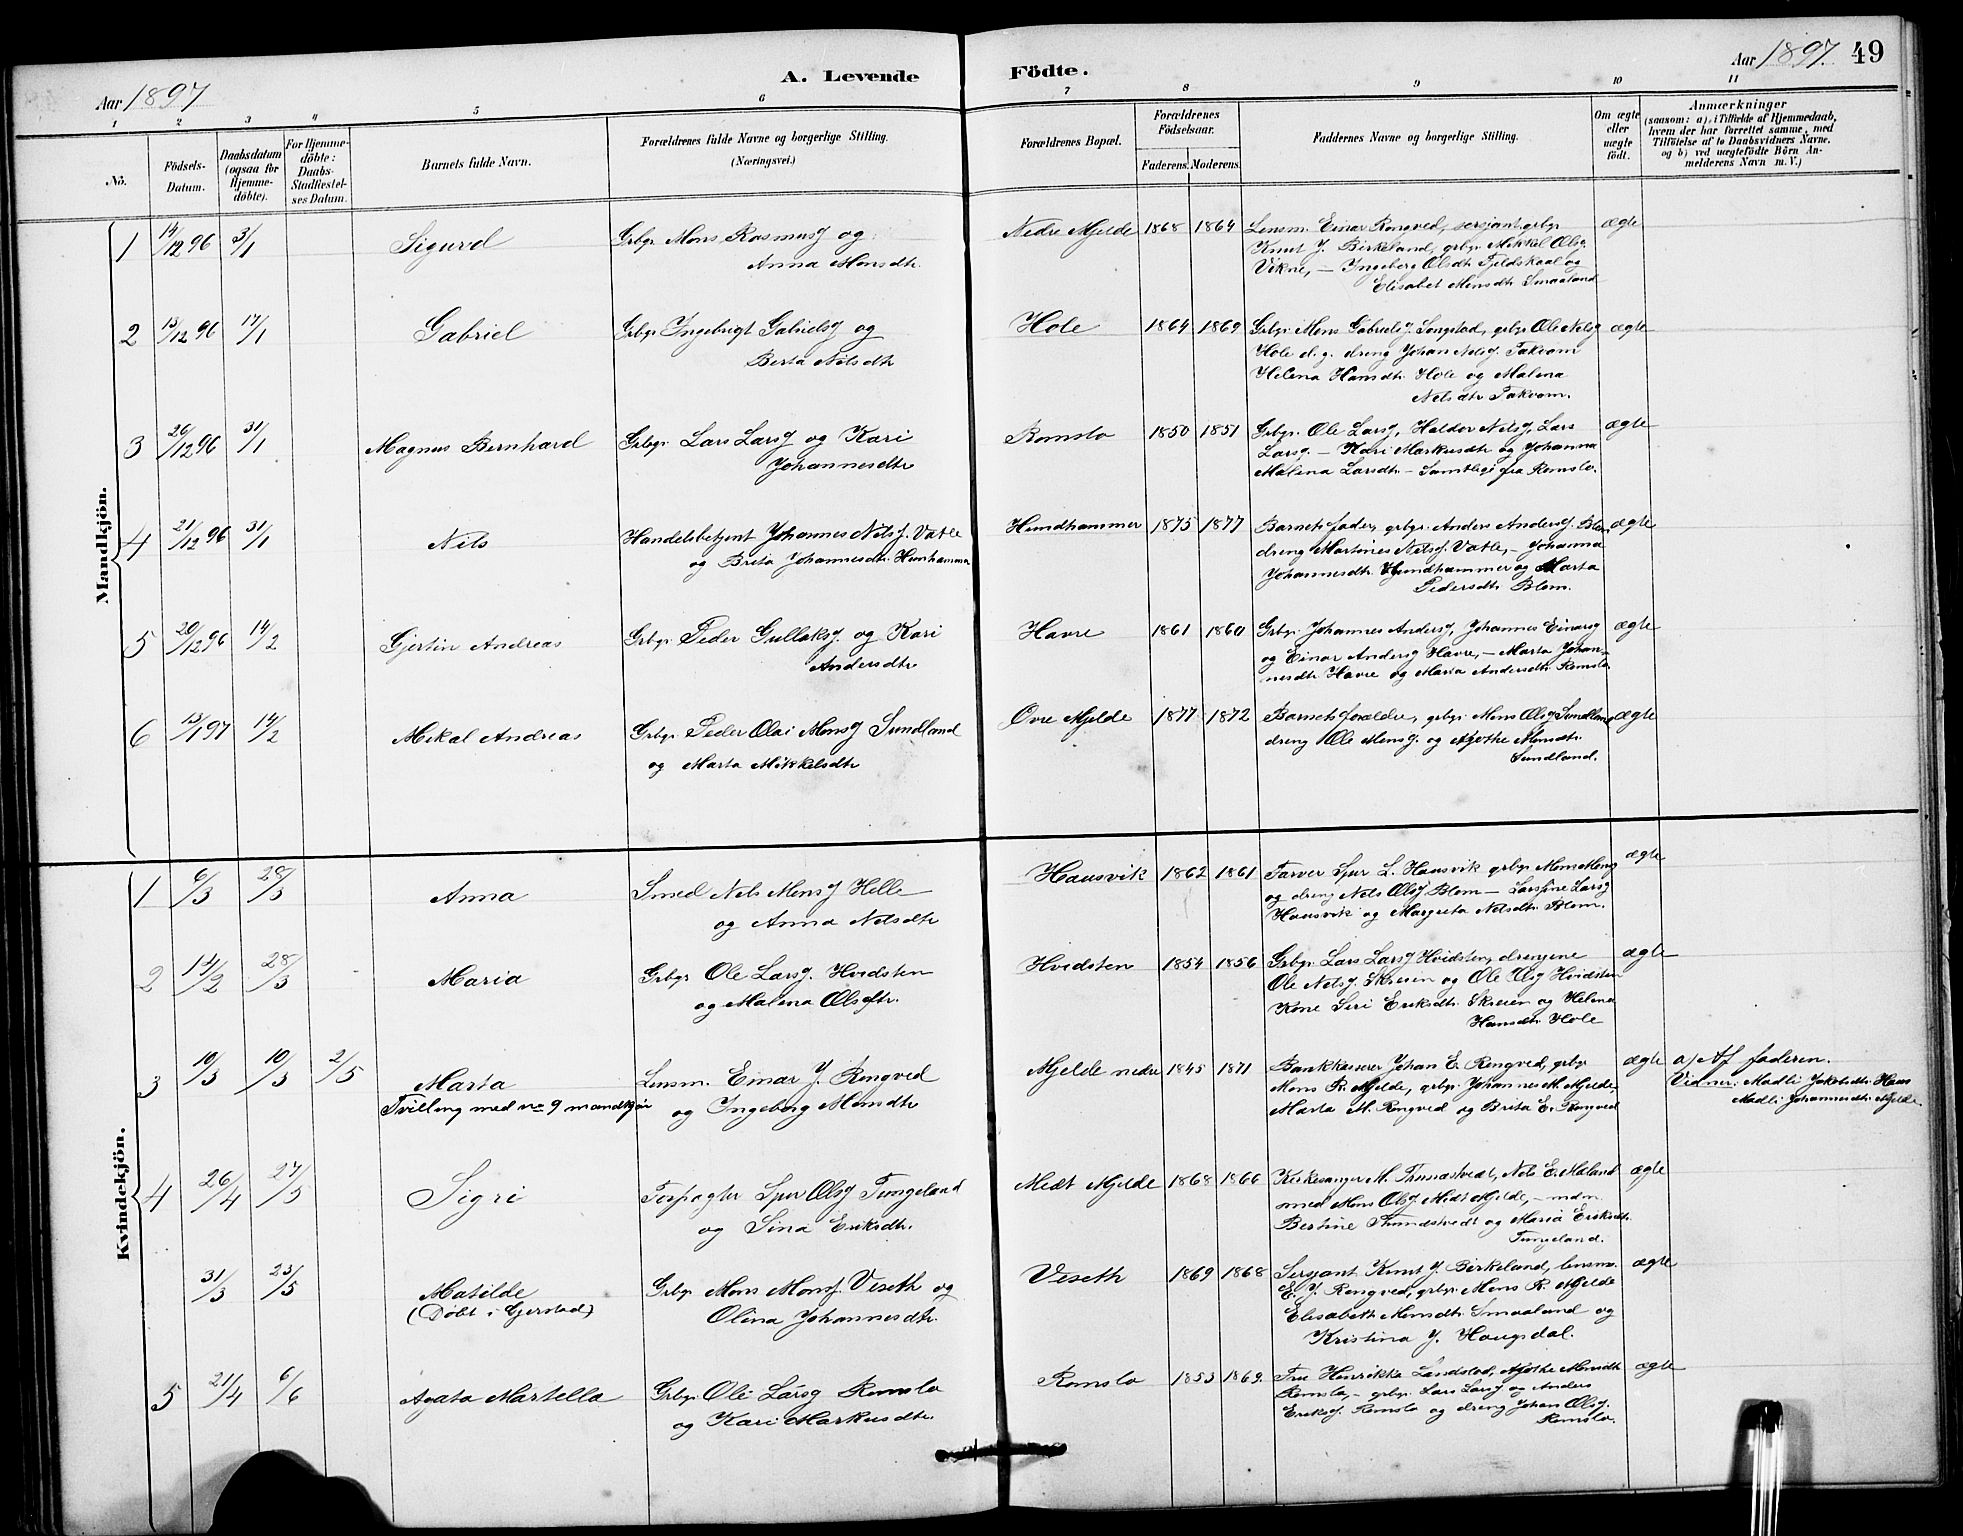 Aar 1897
A. Levende
Födte.
Aar 1897.
49
1 2 3 4 5 6 7 8 9 10 11
Nö.
Födsels-
Datum.
Daabsdatum
(ogsaa for
Hjemme-
döbte).
For Hjemme-
döbte:
Daabs-
Stadfæstel-
ses Datum.
Barnets fulde Navn.
Forældrenes fulde Navne og borgerlige Stilling.
(Næringsvei.)
Forældrenes Bopæl.
Forældrenes
Födselsaar.
Faderens. Moderens.
Faddernes Navne og borgerlige Stilling.
Om ægte
eller
uægte
födt.
Anmærkninger
(saasom: a), i Tilfælde af Hjemmedaab,
hvem der har forrettet samme, med
Tilföielse af to Daabsvidners Navne.
og b) ved uægtefödte Börn An-
melderens Navn m. V.)
Mandkjön.
1 14/12 96 3/1 Sigurd
Grbgr. Mons Rasmusj og
Anna Monsdtr.
Nedre Mjelde 1868 1864
Lensm. Einar Rongved, sersjant, grbgr.
Knut J. Birkeland, grbgr. Mikkel Olsj.
Vikne, — Ingeborg Olsdtr. Fjeldskaal og
Elisabet Monsdtr Smaaland
ægte
2 13/12 96 17/1 Gabriel
Grbgr. Ingebrigt Gabrielsj og
Berta Nilsdtr
Hole 1864 1869
Grbgr. Mons Gabrielsj. Songstad, grbgr. Ole Nilsj
Hole d. y. dreng Johan Nilsj. Takvam
Helena Hansdtr. Hole og Malena
Nilsdtr Takvam.
ægte
3 26/12 96 31/1 Magnus Bernhard
Grbgr. Lars Larsj og Kari
Johannesdtr
Romslo 1850 1851
Grbgr. Ole Larsj, Haldor Nilsj, Lars
Larsj. — Kari Markusdtr og Johanna
Malena Larsdtr. — Samtlige fra Romslo.
ægte
4 21/12 96 31/1 Nils
Handelsbetjent Johannes Nilsj. Vatle
og Brita Johannesdtr. Hunhammer
Hundhammer 1875 1877
Barnets fader, grbgr. Anders Andersj. Blom
dreng Martines Nilsj. Vatle, — Johanna
Johannesdtr. Hundhammer og Marta
Pedersdtr Blom.
ægte
5 20/12 96 14/2 Gjertin Andreas
Grbgr. Peder Gullaksj. og Kari
Andersdtr
Havre 1861 1860
Grbgr. Johannes Andersj, Johannes Einarsj
og Einar Andersj Havre, — Marta Johan-
nesdtr Havre og Maria Andersdtr Romslo
ægte
6 13/1 97 14/2 Mikal Andreas
Grbgr. Peder Olai Monsj Sundland
og Marta Mikkelsdtr
Øvre Mjelde 1877 1872
Barnets forældre, grbgr. Mons Olsj Sundland,
dreng Ole Monsj. og Agathe Monsdtr.
Sundland.
ægte
Kvindekjön.
1 6/3 28/3 Anna
Smed Nils Monsj Helle
og Anna Nilsdtr
Hausvik 1862 1861
Farver Sjur L. Hausvik grbgr. Mons Monsj
og dreng Nils Olsj Blom — Larsine Larsj
Hausvik og Margreta Nilsdtr. Blom.
ægte
2 14/2 28/3 Maria
Grbgr Ole Larsj. Hvidsten
og Malena Olsdtr.
Hvidsten 1854 1856
Grbgr. Lars Larsj Hvidsten, drengene
Ole Nilsj. Skreien og Ole Olsj Hvidsten
Kone Siri Eriksdtr. Skreien og Helena
Hansdtr Hole
ægte
3 10/3 10/3 2/5 Marta
Tvilling med no 9 mandkjøn
Lensm. Einar J. Rongved
og Ingeborg Monsdtr
Mjelde nedre 1845 1871
Bankkasserer Johan E. Rongved, grbgr
Mons R. Mjelde, grbgr. Johannes M. Mjelde,
Marta M. Rongved og Brita E. Rongved
ægte
a) Af faderen.
Vidner: Madli Jakobsdtr. Haus
Madli Johannesdtr. Mjelde
4 26/4 27/5 Sigri
Forpagter Sjur Olsj Tungeland
og Sina Eriksdtr.
Midt Mjelde 1868 1866
Kirkesanger M. Thunestvedt, Nils E. Mæland
med Mons Olsj. Midt Mjelde, — mdm.
Bertine Thunestvedt og Maria Eriksdtr.
Tungeland.
ægte
31/3 23/5 Matilde
(Døbt i Gjerstad)
Grbgr Mons Monsj. Veseth og
Olina Johannesdtr.
Veseth 1869 1868
Sersjant Knut J. Birkeland, lensm.
E. J. Rongved, grbgr. Mons R. Mjelde
Elisabeth Monsdtr. Smaaland og
Kristina J. Haugsdal.
ægte
5 21/4 6/6 Agata Martella
Grbgr. Ole Larsj Romslo
og Kari Markusdtr.
Romslo 1853 1869.
Fru Henrikka Landstad, Agathe Monsdtr
Romslo, — grbgr. Lars Larsj og Anders
Eriksj. Romslo og dreng Johan Olsj.
Romslo.
ægte